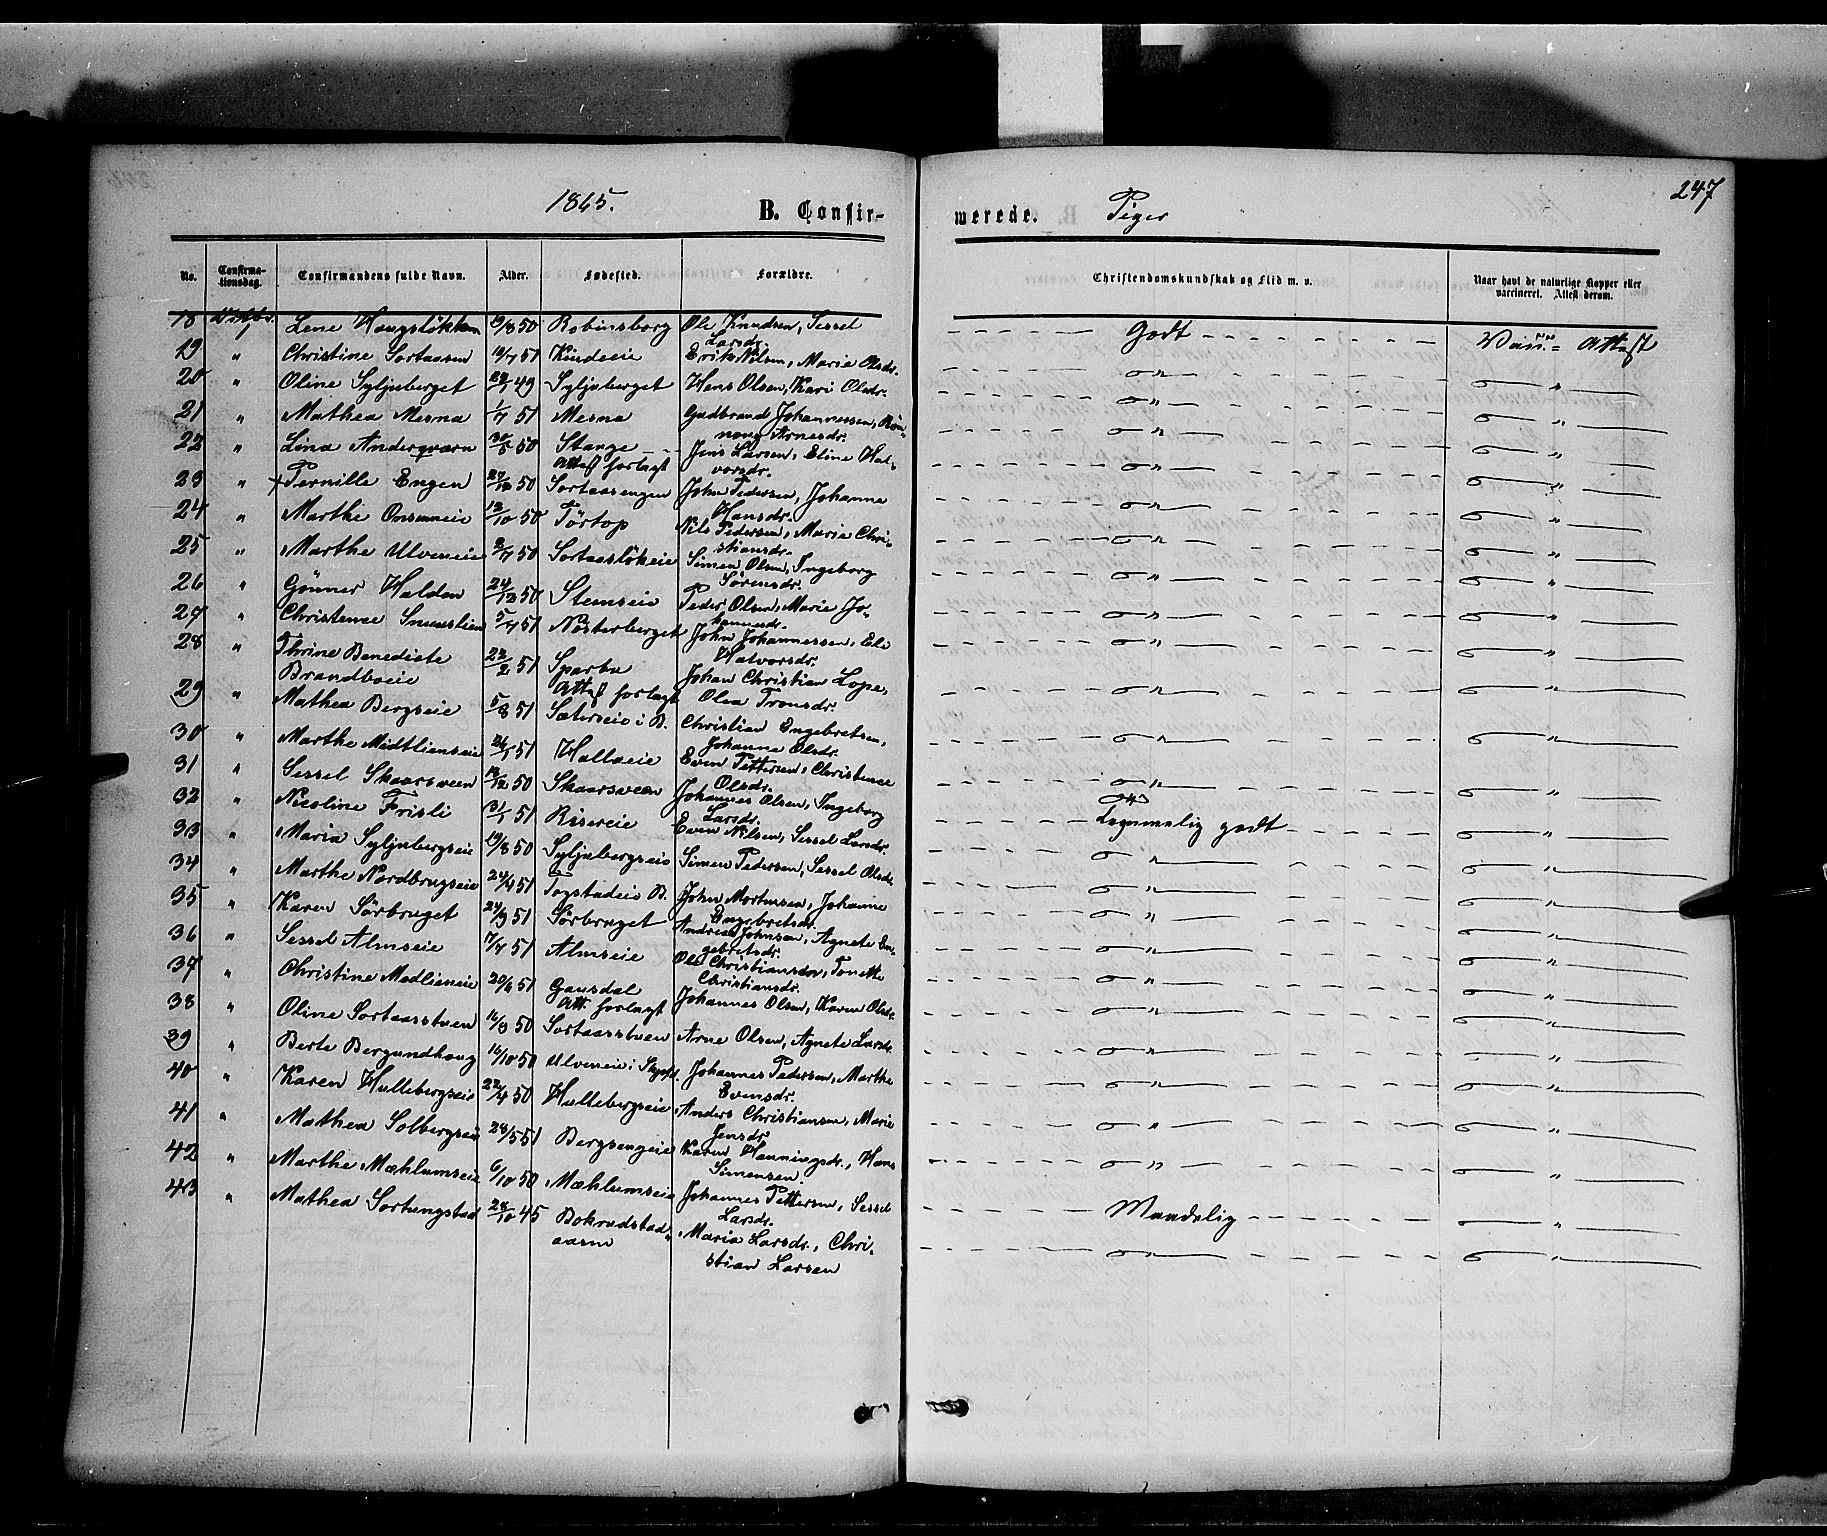 247
1865. B. Confirmerede. Piger
No. Confirmationsdag. Confirmandens fulde Navn. Alder. Fødested. Forældre. Christendomskundskab og Flid m. v. Naar havt de naturlige Kopper eller vaccineret. Attest derom.
18 Lene Haugsløkken 19/8 50 Robinsborg Ole Knudsen, Sessel Larsdr. Godt Attest
19 " Christine Sortaasen Kindeeie Erik Nilsen, Marie Olsdr.
20 " Oline Syljuberget 49 Syljuberget Hans Olsen, Kari Olsdr.
21 " Mathea Mesna 51 Mesna Gudbrand Johannessen, Rønnaug Arnesdr.
22 " Lina Anderqværn 50 Stange Attest forlagt Jens Larsen, Eline Halvorsdr.
23 " Pernille Engen 50 Sortaasengen John Pedersen, Johanne Hansdr.
24 " Marthe Onsumeie 12/10 50 Tørtop Nils Pedersen, Marie Christiansdr.
25 " Marthe Ulveneie 50 Sortaasløkeie Simen Olsen, Ingeborg Sørensdr.
26 " Gønner Haldon 24/12 50 Stemseie Peder Olsen, Marie Johannesdr.
27 " Christence Snuustien 51 Nøsterberget John Johannessen, Eli Halvorsdr.
28 " Thrine Benedicte Brandboeie 22/2 51 Sparbu Attest forlagt Johan Christian Lope, Olea Tronsdr.
29 " Mathea Bergseie 5/3 51 Sæterseie i B. Christian Engebretsen, Johanne Olsdr.
30 " Marthe Midtlienseie 51 Halleeie Even Pettersen, Christence Olsdr.
31 " Sessel Skaarsveen 50 Skaarsveen Johannes Olsen, Ingeborg Larsdr.
32 " Nicoline Frisli 31/1 51 Risereie Even Nilsen, Sessel Larsdr. Temmelig godt
33 " Maria Syljubergseie 19/8 50 Syljubergseie Simen Pedersen, Sessel Olsdr.
34 " Marthe Nordbrugseie 24/4 51 Togstadeie B. John Mortensen, Johanne Engebretsdr.
35 " Karen Sørbruget 51 Sørbruget Andreas Johnsen, Agnete Engebretsdr.
36 " Sessel Almseie 51 Almseie Ole Christiansen, Tonette Christiansdr.
37 " Christine Medlieneie 51 Gausdal Att. forlagt Johannes Olsen, Karen Olsdr.
38 " Oline Sortaasstuen 50 Sortaasstuen Arne Olsen, Agnete Larsdr.
39 " Berte Bergundhaug 16/10 50 Ulveneie i Johannes Pedersen, Marthe Evensdr.
40 " Karen Hullebergseie 22/4 50 Hullebergseie Anders Christiansen, Marie Jensdr.
41 " Mathea Solbergseie 28/5 51 Bergsengeie Karen Henningsdr., Hans Simensen.
42 " Marthe Mæhlumseie 6/10 50 Mæhlumseie Johannes Pettersen, Sessel Larsdr. Maadelig
43 " Mathea Sortungstad 28/10 45 Bokrudstadaasen Maria Larsdr., Christian Larsen